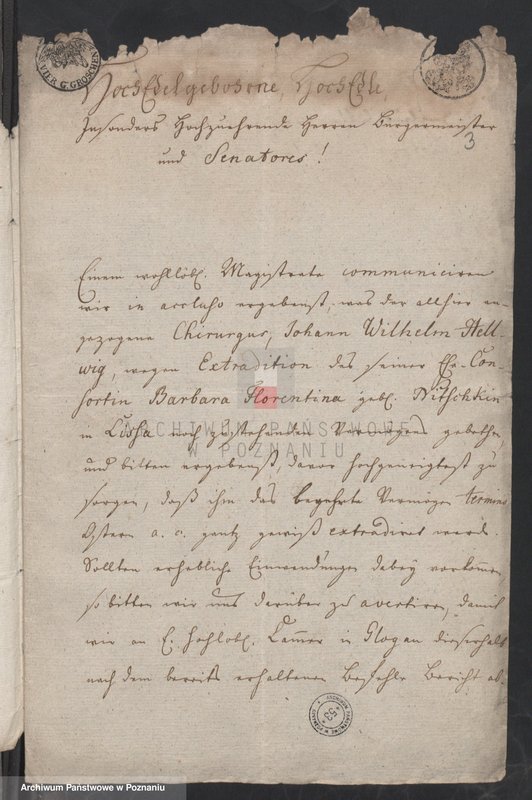 VIER G. GROSCHEN
HochEdelgebohrne, HochEdle,
besonders Hochzuehrende Herren Bürgermeister
und Senatores!
3
Einem wohllöbl. Magistrate communiciren
wir in accluso ergebenst, was der allhier an-
gezogene Chirurgus, Johann Wilhelm Hell-
wig, wegen Extradition des seiner Eh-Con-
sortin Barbara Florentina gebl. Nitschkin
in Lissa noch zustehenden Vermögens gebethen
und bitten ergebenst, davor hochgeneigtest zu
sorgen, daß ihm das begehrte Vermögen termino
Ostern a. c. gantz gewiß extradiret werde.
Sollten erhebliche Einwendungen dabey vorkommen
so bitten wir uns darüber zu avertiren, damit
wir an E. Hochlöbl. Cammer in Glogau dieserhalb
nach dem bereits erhaltenen Befehle Bericht ab-
ARCHIWUM PAŃSTWOWE
W POZNANIU
ARCHIWUM PAŃSTWOWE W POZNANIU
53
Archiwum Państwowe w Poznaniu